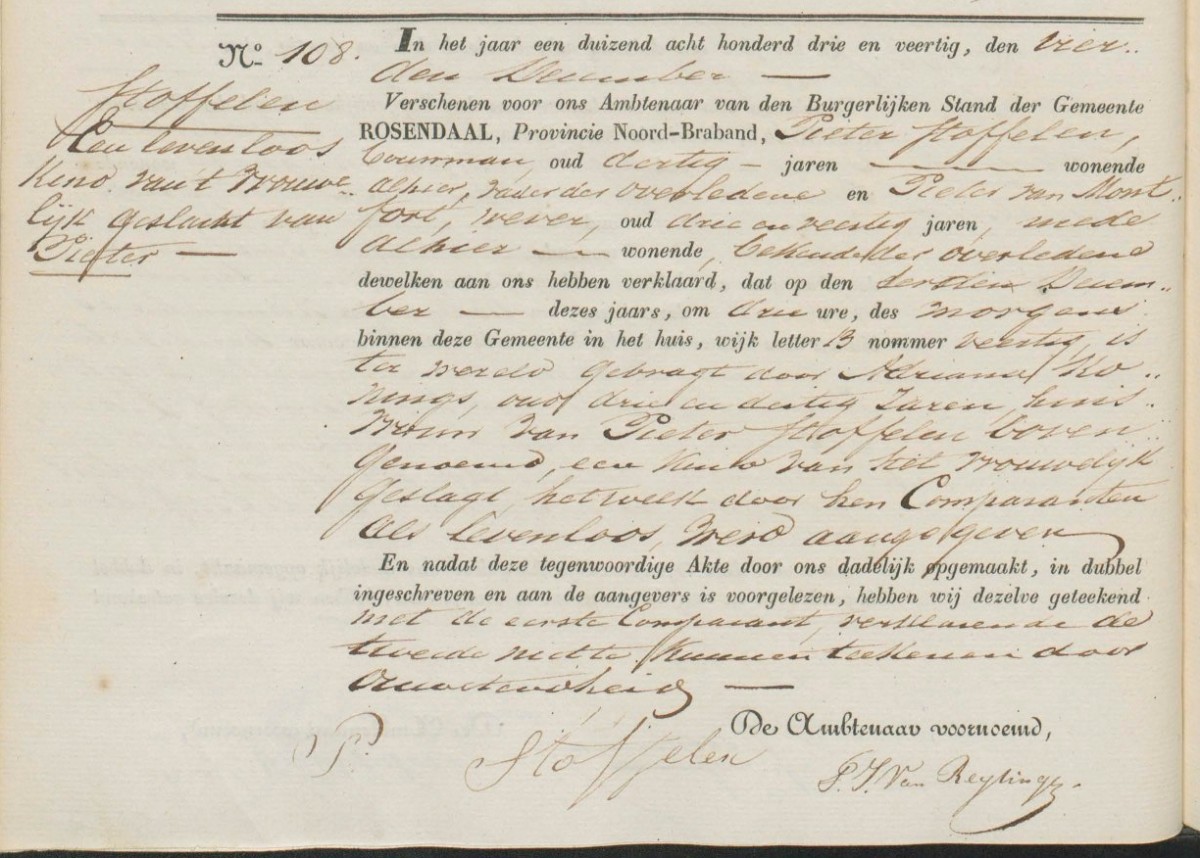 No 108.
Stoffelen
Een levenloos
Kind van't vrouwe-
lijk geslacht van
Pieter —
In het jaar een duizend acht honderd drie en veertig, den vier..
den December —
Verschenen voor ons Ambtenaar van den Burgerlijken Stand der Gemeente
ROSENDAAL, Provincie Noord-Braband, Pieter Stoffelen,
bouwman, oud dertig — jaren — wonende
alhier, vader der overledene en Pieter van Mont..
fort, wever, oud drie en veertig jaren, mede
alhier — wonende, bekende der overledene
dewelken aan ons hebben verklaard, dat op den derden Decem-
ber — dezes jaars, om drie ure, des morgens
binnen deze Gemeente in het huis, wijk letter B nommer veertig, is
ter wereld gebragt door Adriana Ko..
nings, oud drie en dertig Jaren, huis..
vrouw van Pieter Stoffelen boven..
genoemd, een kind van het vrouwelijk
geslagt, hetwelk door hen Comparanten
als levenloos, werd aangegeven
En nadat deze tegenwoordige Akte door ons dadelijk opgemaakt, in dubbel
ingeschreven en aan de aangevers is voorgelezen, hebben wij dezelve geteekend
met de eerste Comparant, verklarende de
tweede niet te kunnen teekenen door
onwetendheid —
De Ambtenaar voornoemd,
P. Stoffelen
P. J. Van Reylingh